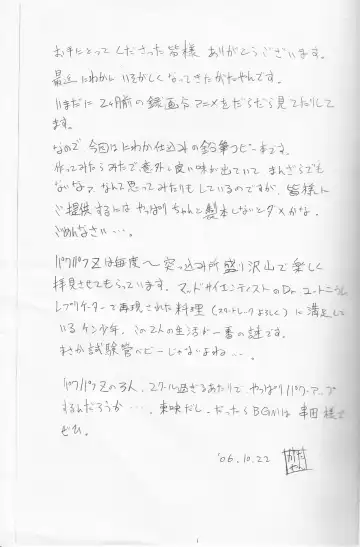 お手にとってくださった皆様 ありがとうございます。
最近にわかにいそがしくなってきたかたやんです。
いまだに2ヶ月前の録画分アニメをだらだら見てたりして
ます。
なので 今回はにわか仕込みの鉛筆コピー本です。
作ってみたらみたで意外と良い味が出ていて まんざらでも
ないなァ なんて思ってみたりもしているのですが、皆様に
ご提供するには やっぱりちゃんと製本しないとダメかな。
ごめんなさい…。
パワパフZは毎度〜突っ込み所盛り沢山で楽しく
拝見させてもらっています。マッドサイエンティストのDr.ユートニウム
レプリケーターで再現された料理(スタートレックよろしく)に満足して
いるケン少年、この2人の生活が一番の謎です。
まさか試験管ベビーじゃないよね…。
パワパフZの3人、スクール過ぎるあたりで、やっぱりパワーアップ
するんだろうか…、東映だし。だったらBGMは 串田様で
ぜひ。
'06.10.22